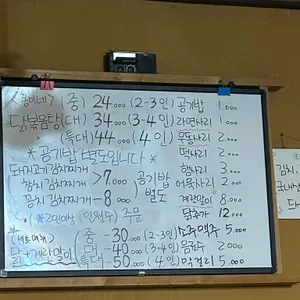 (중) 24.000 (2-3인) 공기밥 1.000
닭볶음탕 (대) 34.000 (3-4인) 라면사리 1.000
(특대) 44.000 (4인) 우동사리 2.000
*공기밥 별도입니다* 떡사리 2.000
돼지고기김치찌개 햄사리 2.000
참치김치찌개 >7.000 공기밥 어묵사리 2.000
꽁치김치찌개 - 8.000 별도 계란말이 8.000
*2인이상 (인원수) 주문 닭추가 12.000
(세트메뉴) (중 -30.000 (2-3인) 소주맥주 5.000
닭+계란말이 대 -40.000 (3-4인) 음료수 2.000
특대 -50.000 (4인) 막걸리 5.000
김치,
국내산